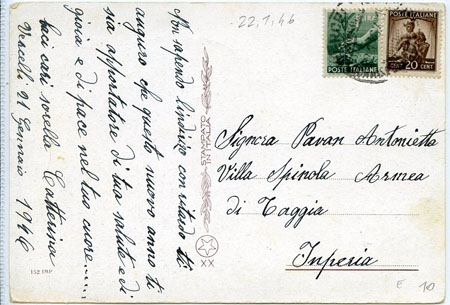 22.1.46
Non sapendo l'indirizzo con ritardo ti
auguro che questo nuovo anno ti
sia apportatore di tua salute e di
gioia e di pace nel tuo cuore....
baci cari sorella Catterina
Vercelli 21 Gennaio 1946
POSTE ITALIANE
POSTE ITALIANE
20 CENT
Signora Pavan Antonietta
Villa Spinola Armea
di Taggia
Inperia
XX
152 IMP
E 10